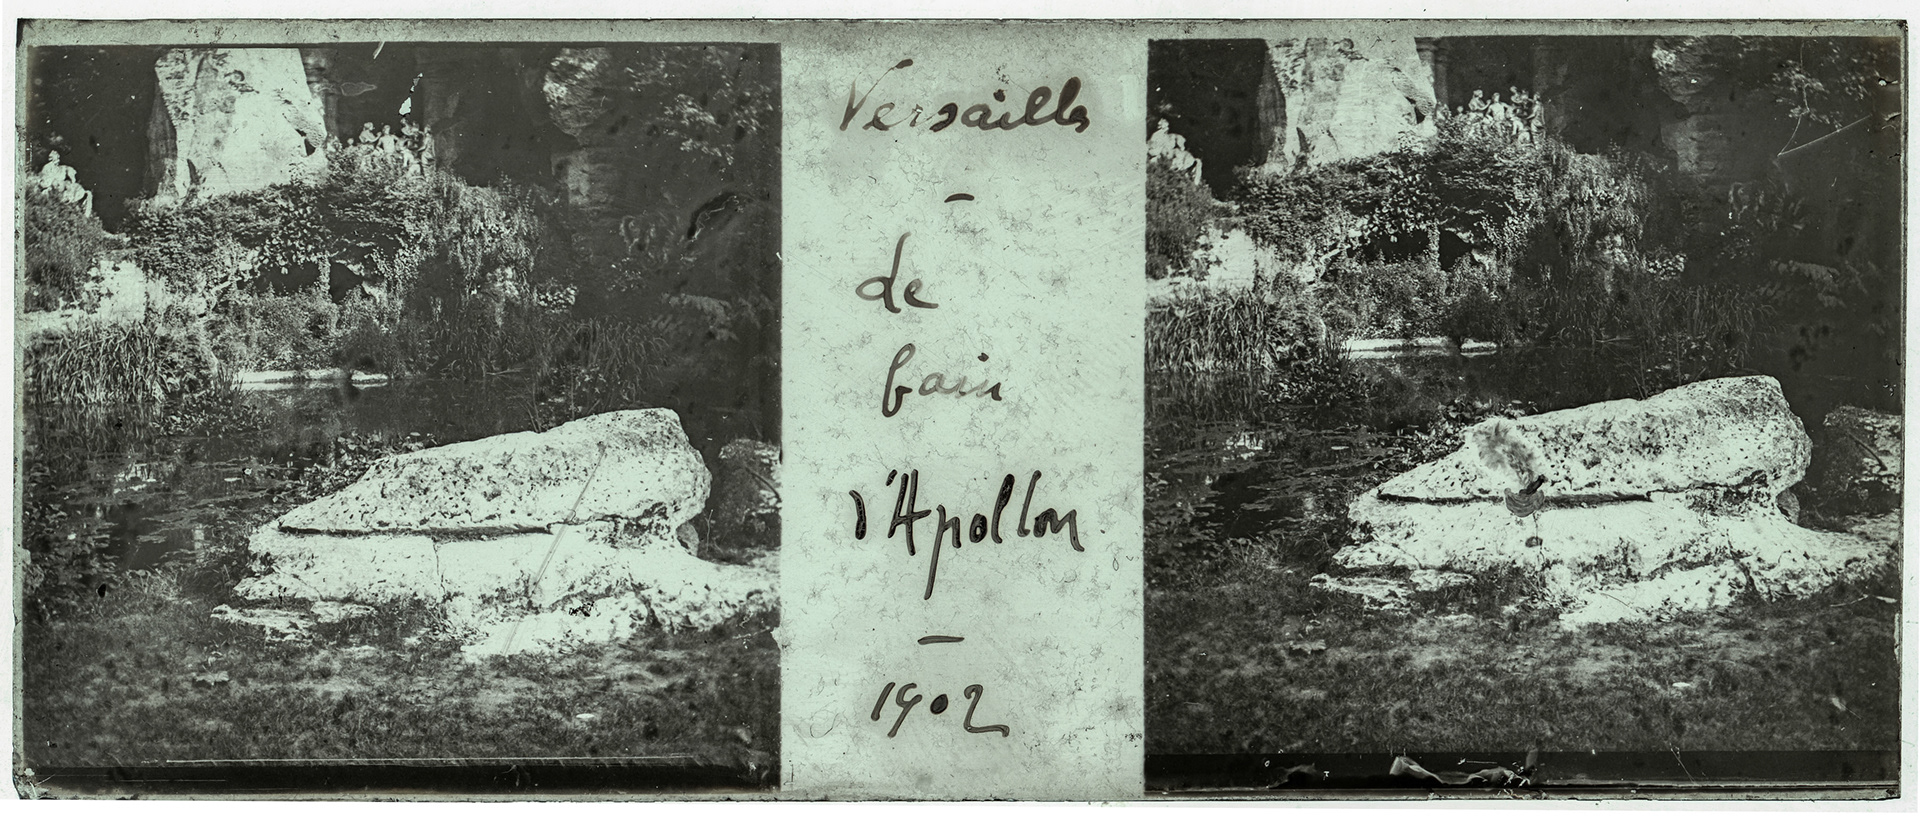 Versailles
-
de
bain
d'Apollon
-
1902